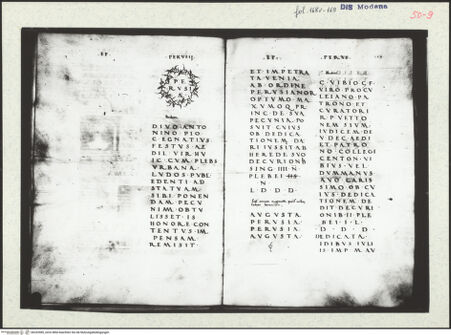 fol. 168v-169
DIS Modena
50-9
ET
PERVSII
PE
RVSI
A
DIVO ANTO
NINO PIO
C EGNATIVS
FESTVS AE
DIL VIR IV
IC CVM PLEBS
VRBANA
LVDOS PVBL
EDENTI AD
STATVAM
SIBI PONEN
DAM PECV
NIM OBTV
LISSET IS
HONORE CON
TENTVS IM
PENSAM
REMISIT
ET
PERVS
ET IMPETRA
TA VENIA
AB ORDINE
PERVSIANOR
OPTVMO MA
XVMOQ PR
INC DE SVA
PECVNIA PO
SVIT CVIVS
OB DEDICA
TIONEM DA
RI IVSSIT AB
HEREDE SVO
DECVRIONIB
SING IIII N
PLEBEI
N
L D D D
AVGVSTA
PERVSIA
PERVSIA
AVGVSTA
C VIBIO C F
VIRO PROCV
LEIANO PA
TRONO ET
CVRATORI
R P VETTO
NENSIVM
IVDICEM DE
V DEC AEDI
ET PATRO
NO COLLEGI
CENTON VI
BIVS VEL
DVMMANVS
AVO CARIS
SIMO OB CV
IVS DEDICA
TIONEM DE
DIT DECVRI
ONIB II PLE
BEI S L
D D D
DEDICATA
IDIBVS IVLI
IS IMP M AV